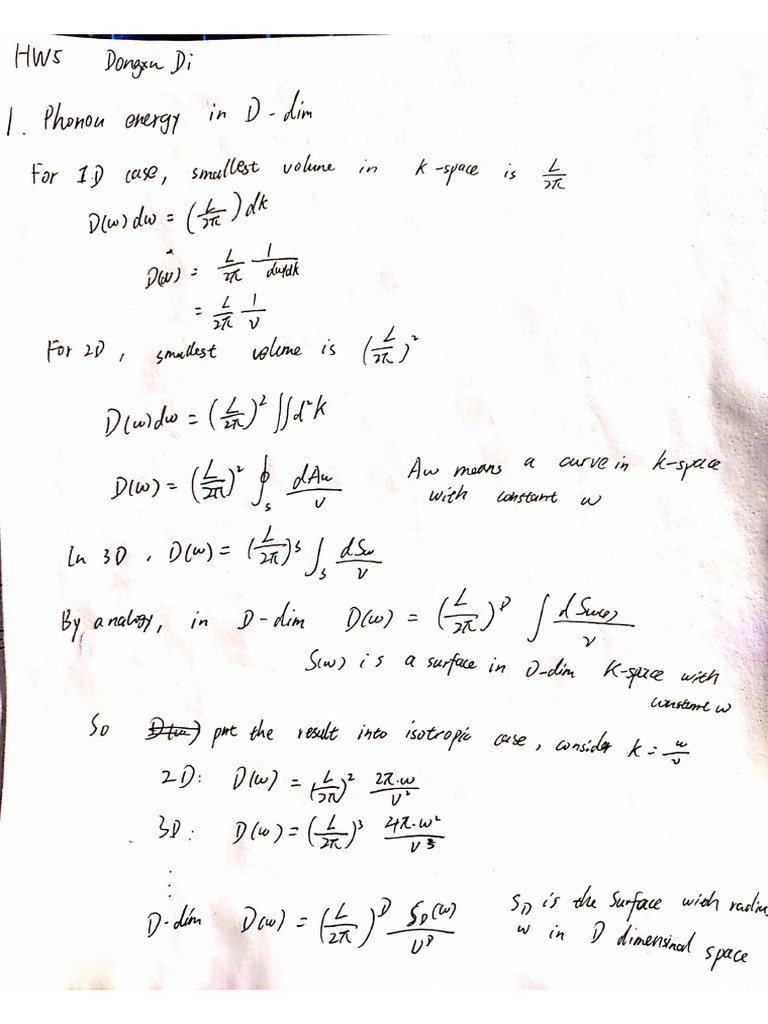 HW5 Dongxu Di
1. Phonon energy in D-dim
For 1D case, smallest volume in k-space is L/2π
D(ω)dω = (L/2π)dk
D(ω) = L/2π 1/dω/dk
= L/2π 1/v
For 2D, smallest volume is (L/2π)²
D(ω)dω = (L/2π)² ∬d²k
D(ω) = (L/2π)² ∮_S dAω/v Aω means a curve in k-space
with constant ω
In 3D, D(ω) = (L/2π)³ ∫_S dSω/v
By analogy, in D-dim D(ω) = (L/2π)^D ∫ dS(ω)/v
S(ω) is a surface in D-dim k-space with
constant ω
So put the result into isotropic case, consider k = ω/v
2D: D(ω) = (L/2π)² 2π·ω/v²
3D: D(ω) = (L/2π)³ 4π·ω²/v³
⋮
D-dim D(ω) = (L/2π)^D S_D(ω)/v^D S_D is the surface with radius
ω in D dimensinal space